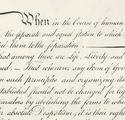 When in the Course of human
the separate and equal station to which
them to the separation.
that among these are Life, Liberty and
That whenever any Form of Gov
such principles and organizing its
established should not be changed for lig
themselves by abolishing the forms to which
absolute Despotism, it is their right